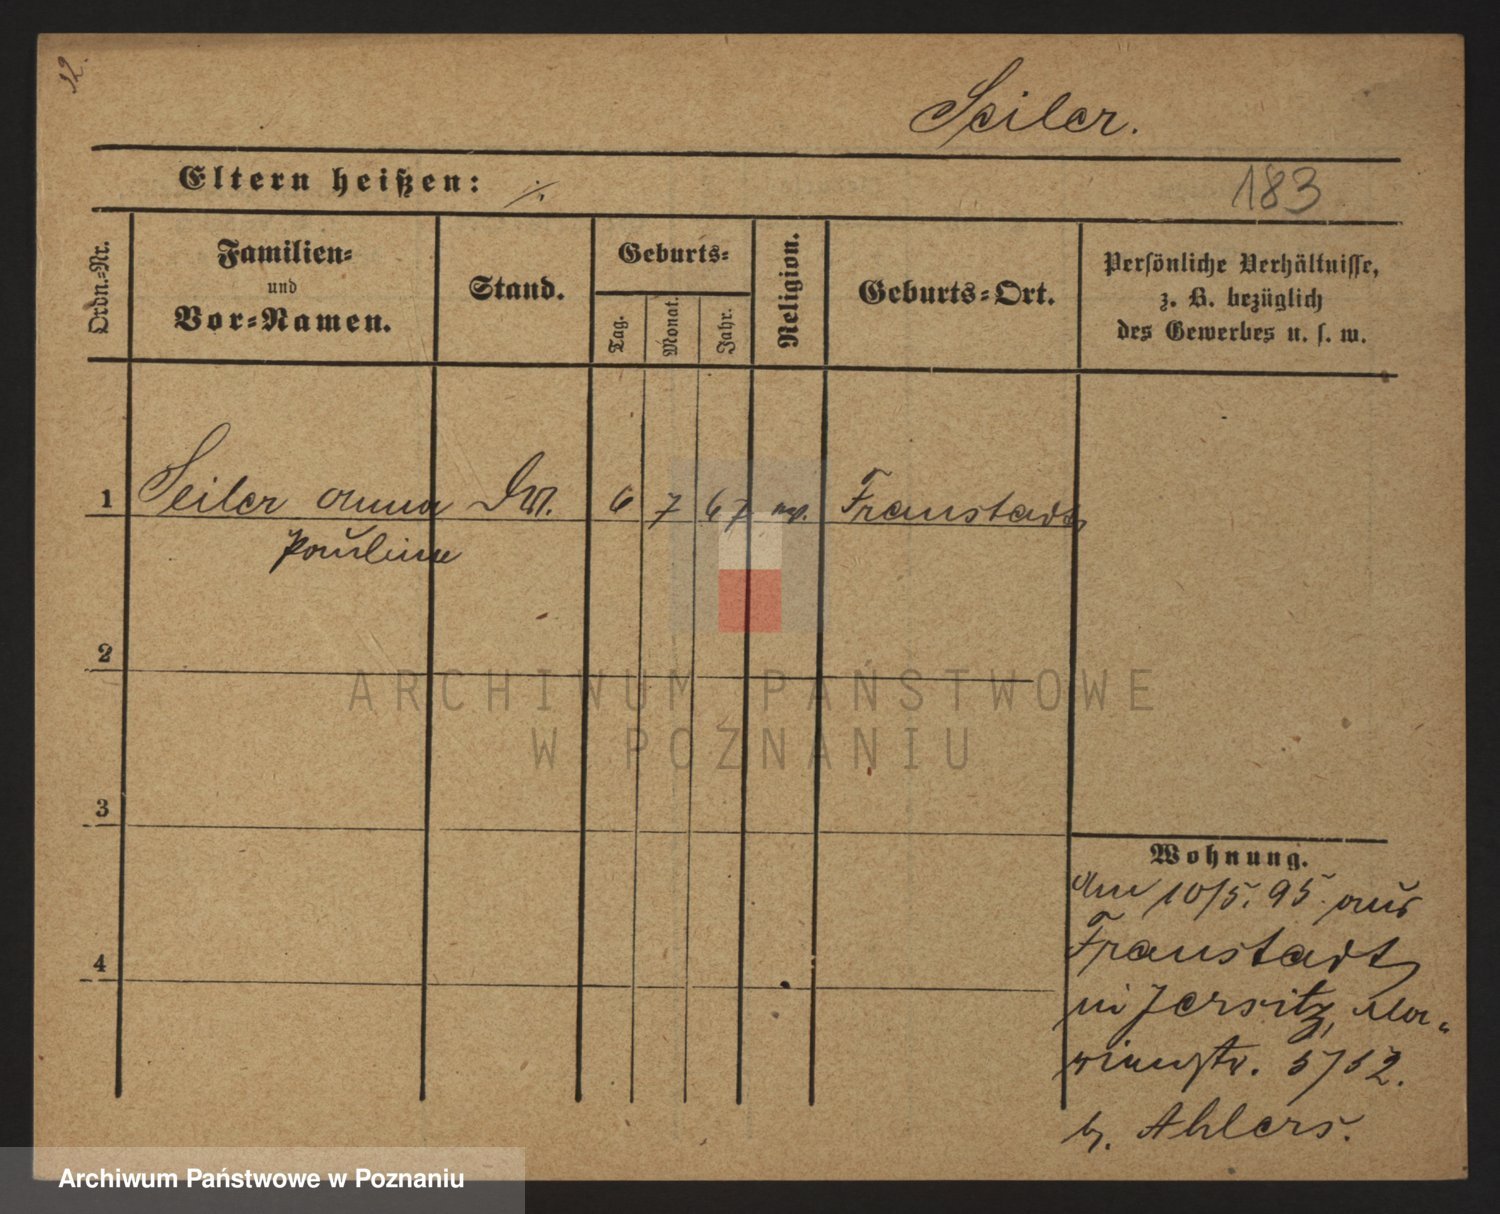 12.
Seiler.
Eltern heißen: ./.
183
Ordn.=Nr.
Familien=
und
Vor=Namen.
Stand.
Geburts=
Tag.
Monat.
Jahr.
Religion.
Geburts=Ort.
Persönliche Verhältnisse,
z. B. bezüglich
des Gewerbes u. s. w.
1 Seiler Anna 6 7 67 Fraustadt
Pauline
2
3
4
Wohnung.
Am 10/5. 95. aus
Fraustadt
in Jersitz,
b. Ahlers.
ARCHIWUM PAŃSTWOWE
W POZNANIU
Archiwum Państwowe w Poznaniu